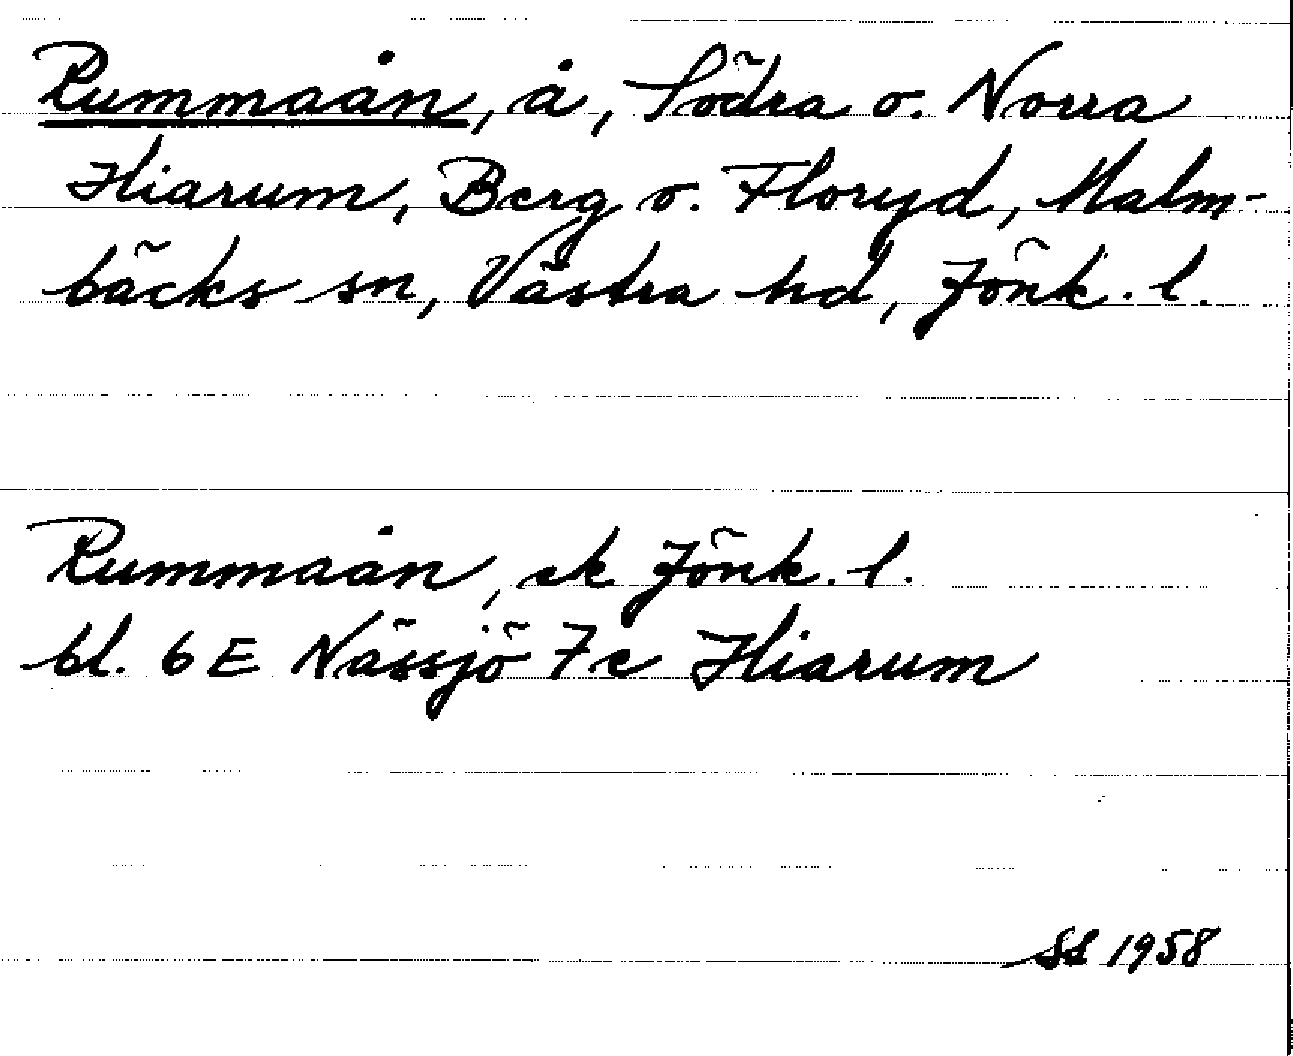 Rummaån, å, Södra o. Norra
Hiarum, Berg o. Floryd, Malm-
bäcks sn, Västra hd, Jönk. l.
Rummaån, ek Jönk. l.
bl. 6 E Nässjö 7c Hiarum
SS 1958